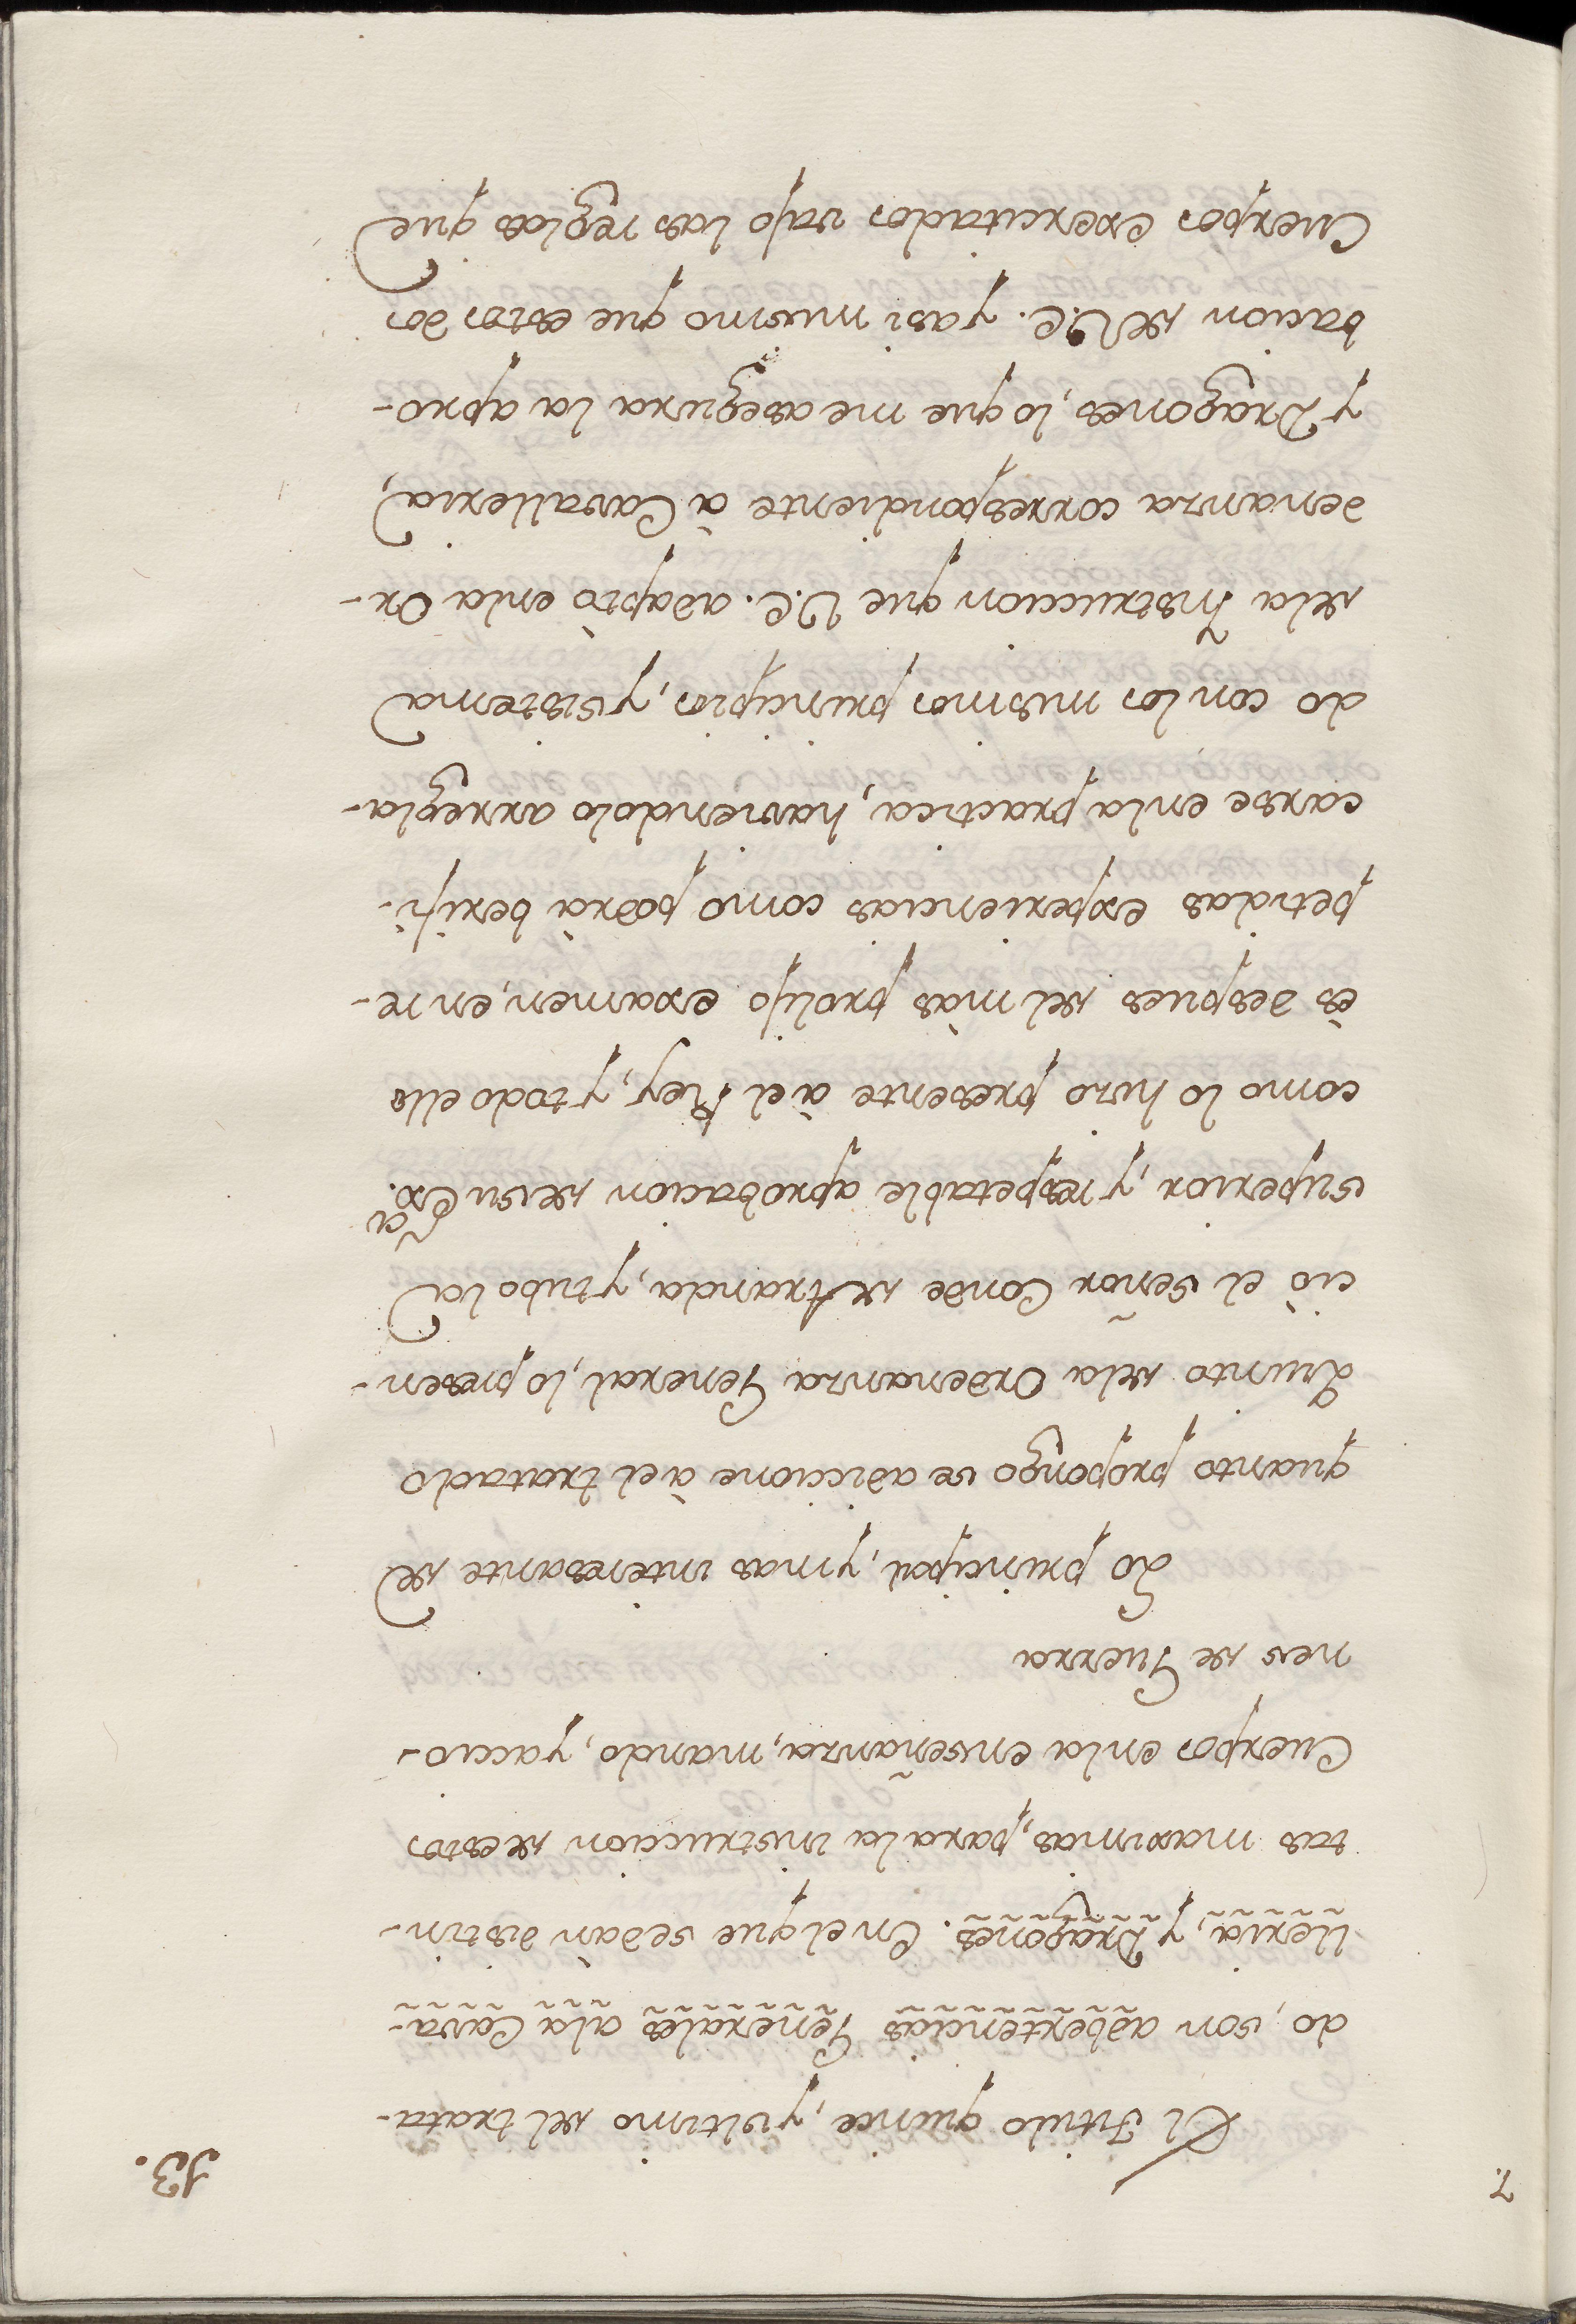 7.
13.
El Titulo quince, y ultimo del trata-
do, son adbertencias Generales ala Cava-
lleria, y Dragones. En el que se dàn distin-
tas maximas, para la instruccion de estos
Cuerpos en la enseñanza, mando, y accio-
nes de Guerra
Lo principal, y mas interesante de
quanto propongo se adiccione à el tratado
Quinto dela Ordenanza General, lo presen-
ciò el señor Conde de Aranda, y tubo la
superior, y respetable aprobacion de su Ex.ã
como lo hizo presente à el Rey, y todo ello
ès despues del màs prolijo examen, en re-
petidas experiencias como podrà berifi-
carse en la practica, haviendolo arregla-
do con los mismos principios, y sistema
dela Instruccion que V.E. adaptò en la Or-
denanza correspondiente à Cavalleria,
y Dragones, lo que me asegura la apro-
bacion de V.E. y asi mismo que estos dos
Cuerpos exercitados vajo las reglas que